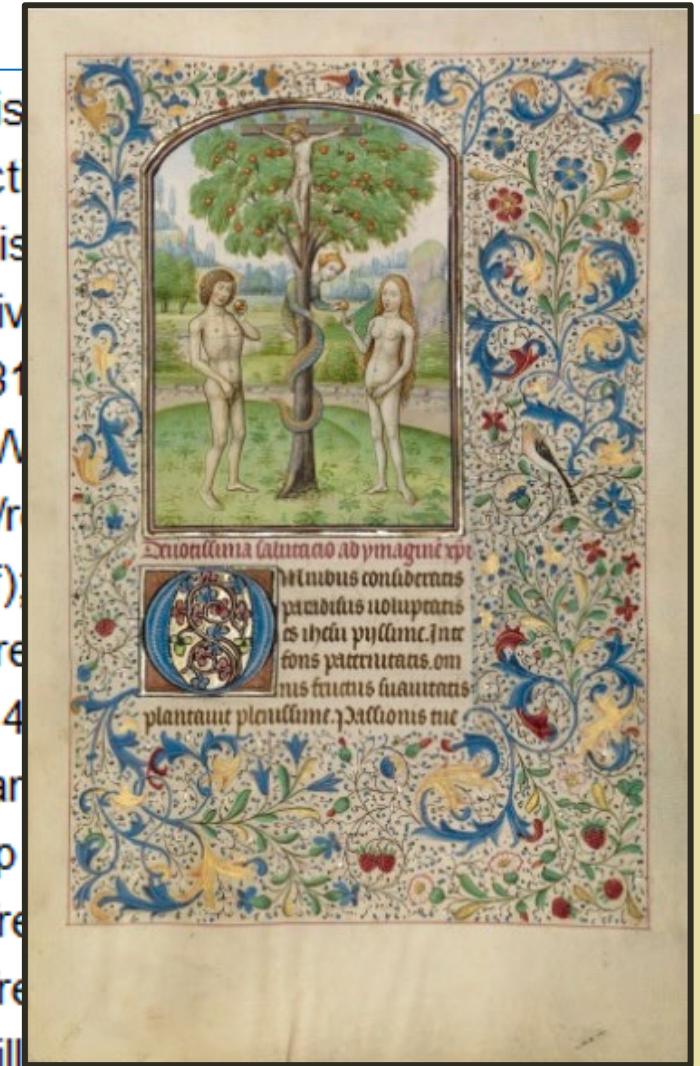 is
ct
is
iv
31
W
/re
f);
re
4
ar
p
re
re
ill
Deuotissima salutacio ad ymagine xpi
Omnibus consideratis
paradisus uoluptatis
es ihesu pijssime. In te
fons paternitatis. om
nis fructus suauitatis
plantauit plenissime. Passionis tue